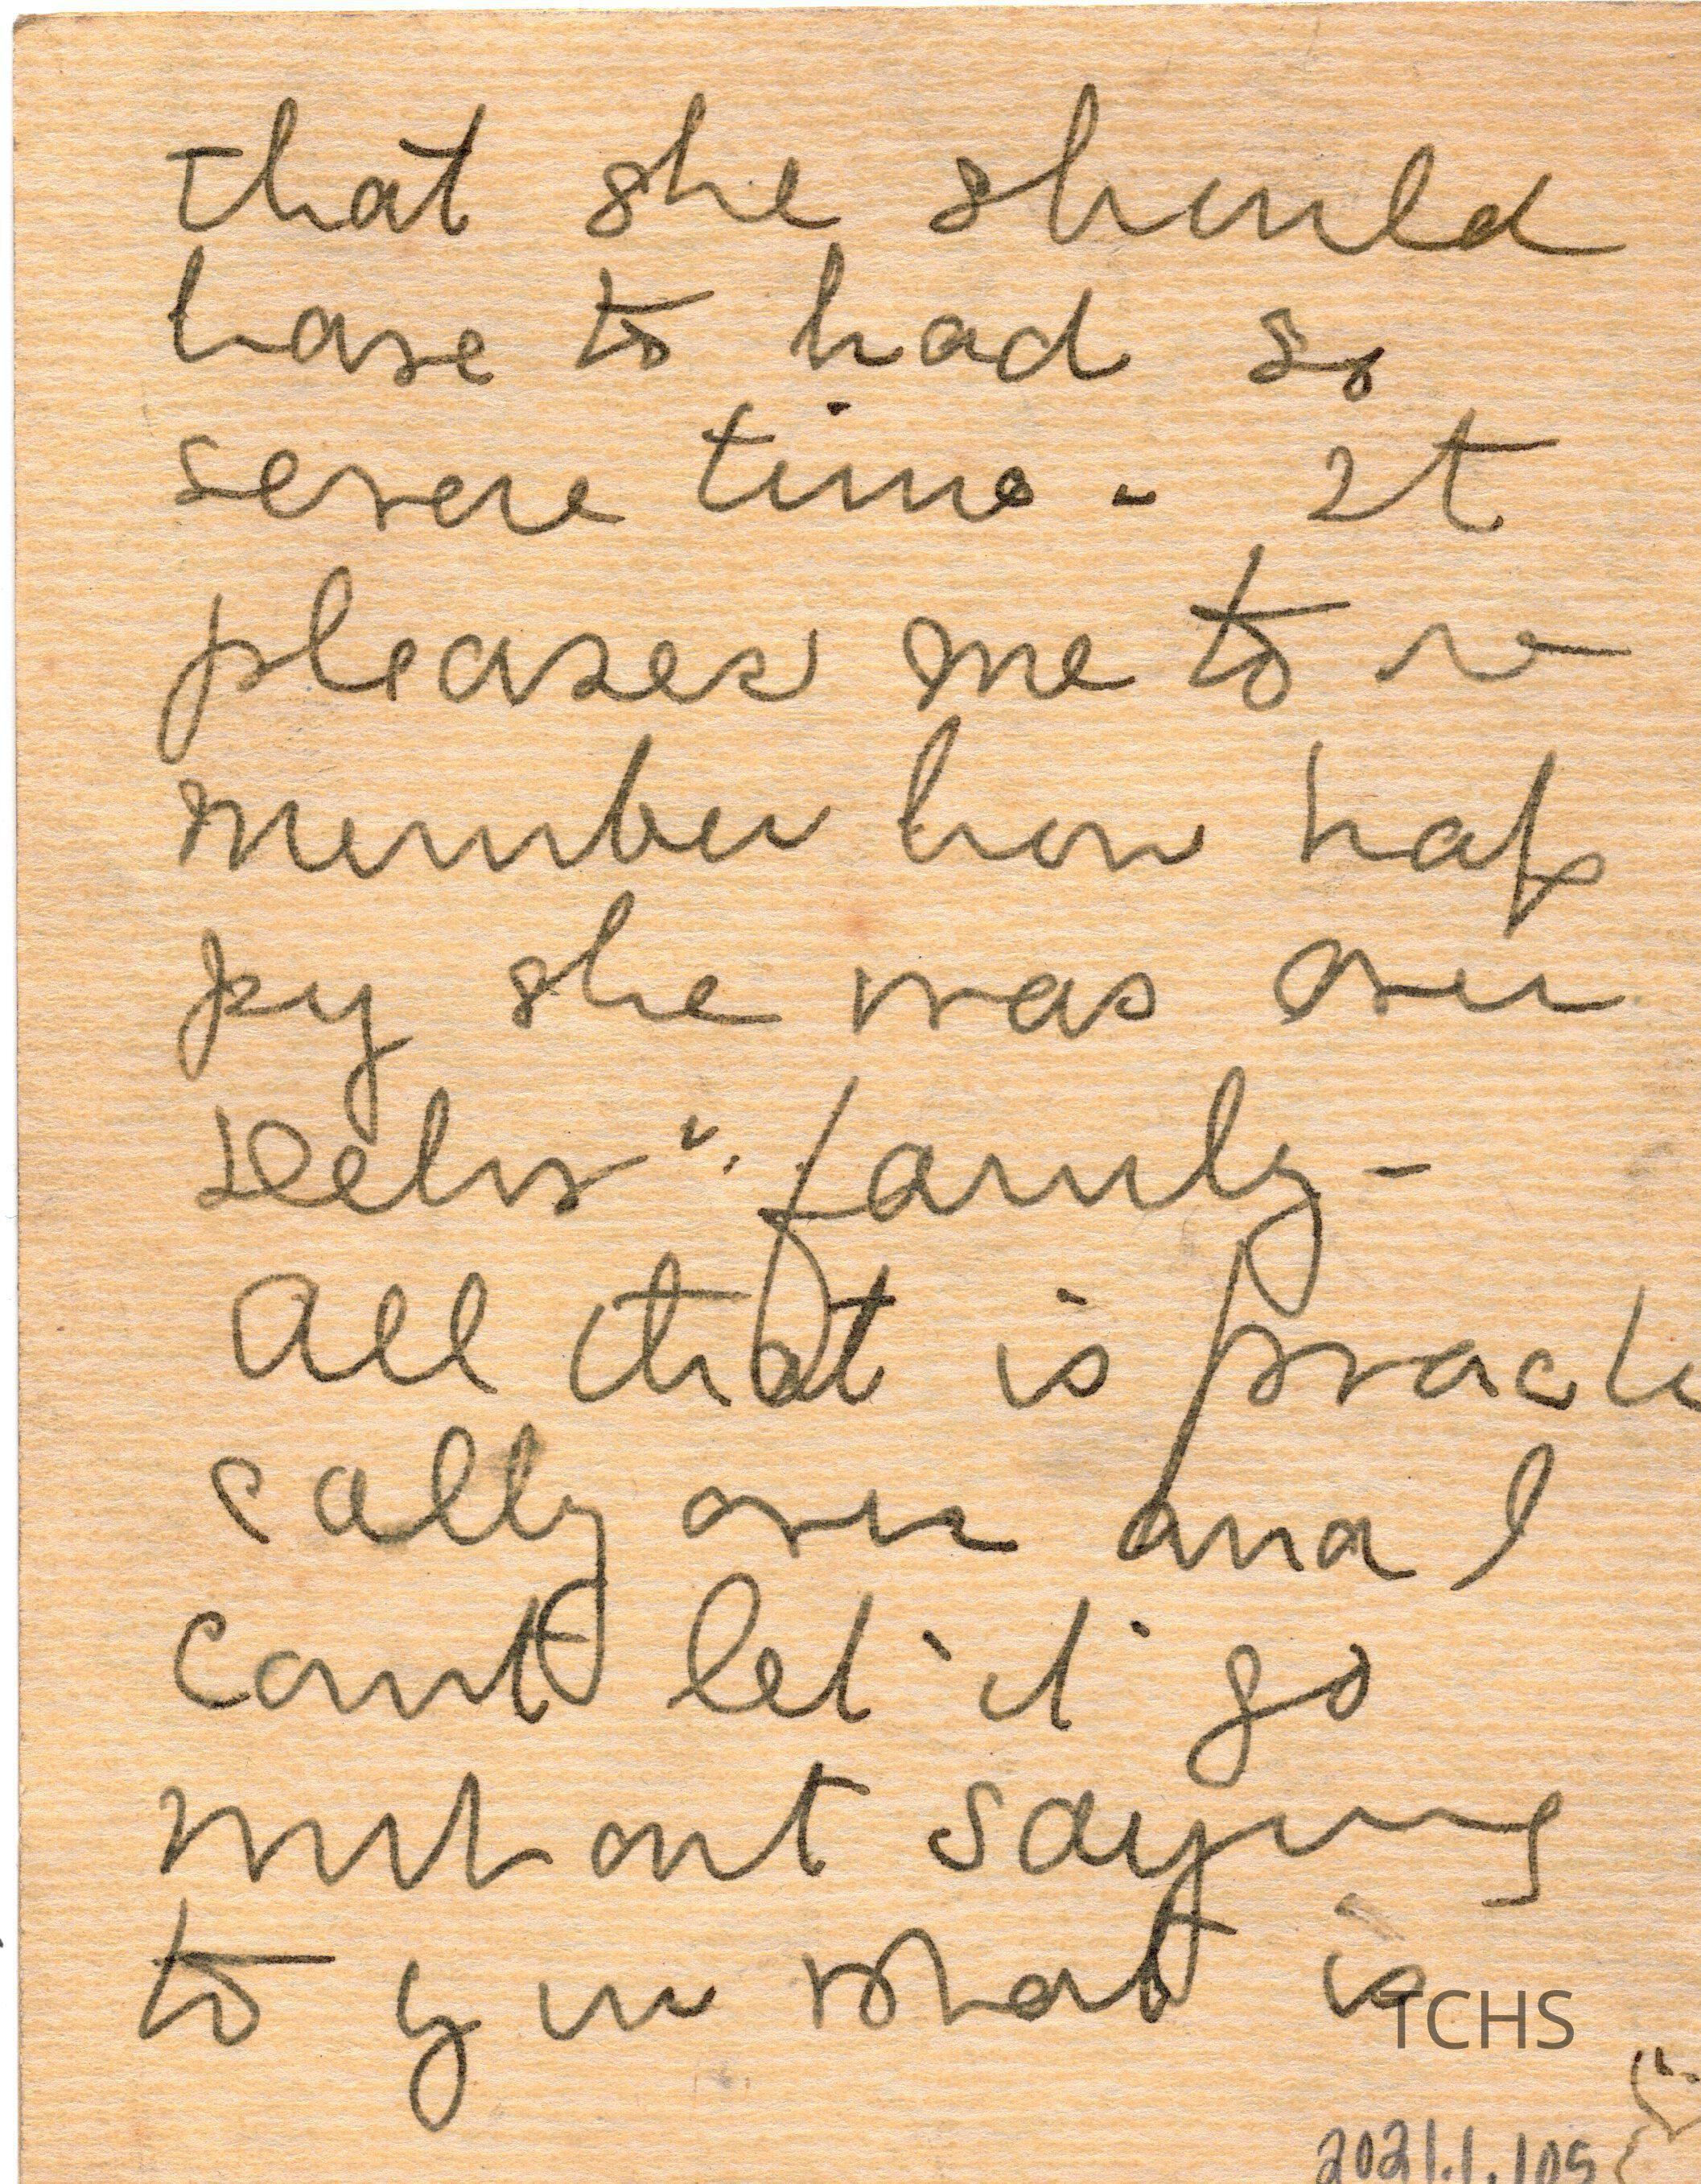 that she should
have to had so
severe time - It
pleases me to re-
member how hap
py she was over
family -
All that is practi
cally over and I
cant let it go
without saying
to you what is
TCHS
2021.1.105